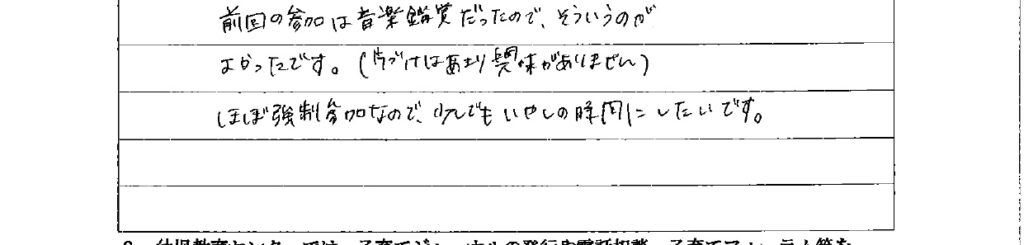 前回の参加は音楽鑑賞だったので、そういうのが
よかったです。(片づけはあまり興味がありません)
ほぼ強制参加なので、少しでもいやしの時間にしたいです。